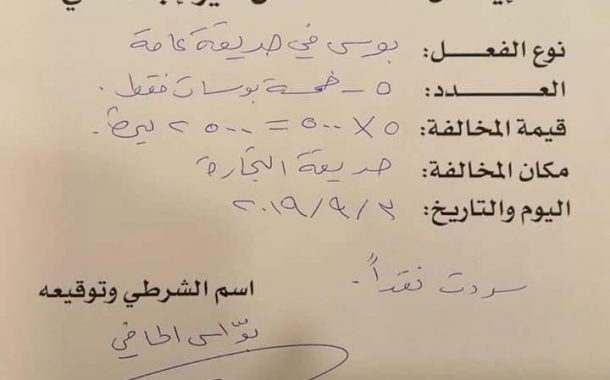 نوع الفعـــل: بوس في حديقة عامة
العـــــدد: ٥ - خمسة بوسات فقط.
قيمة المخالفة: ٥ × ٥٠٠ = ٢٥٠٠ ليرة.
مكان المخالفة: حديقة التجارة
اليوم والتاريخ: ٢٠١٩/٩/٣
سددت نقداً.
اسم الشرطي وتوقيعه
بوّاس الحافي